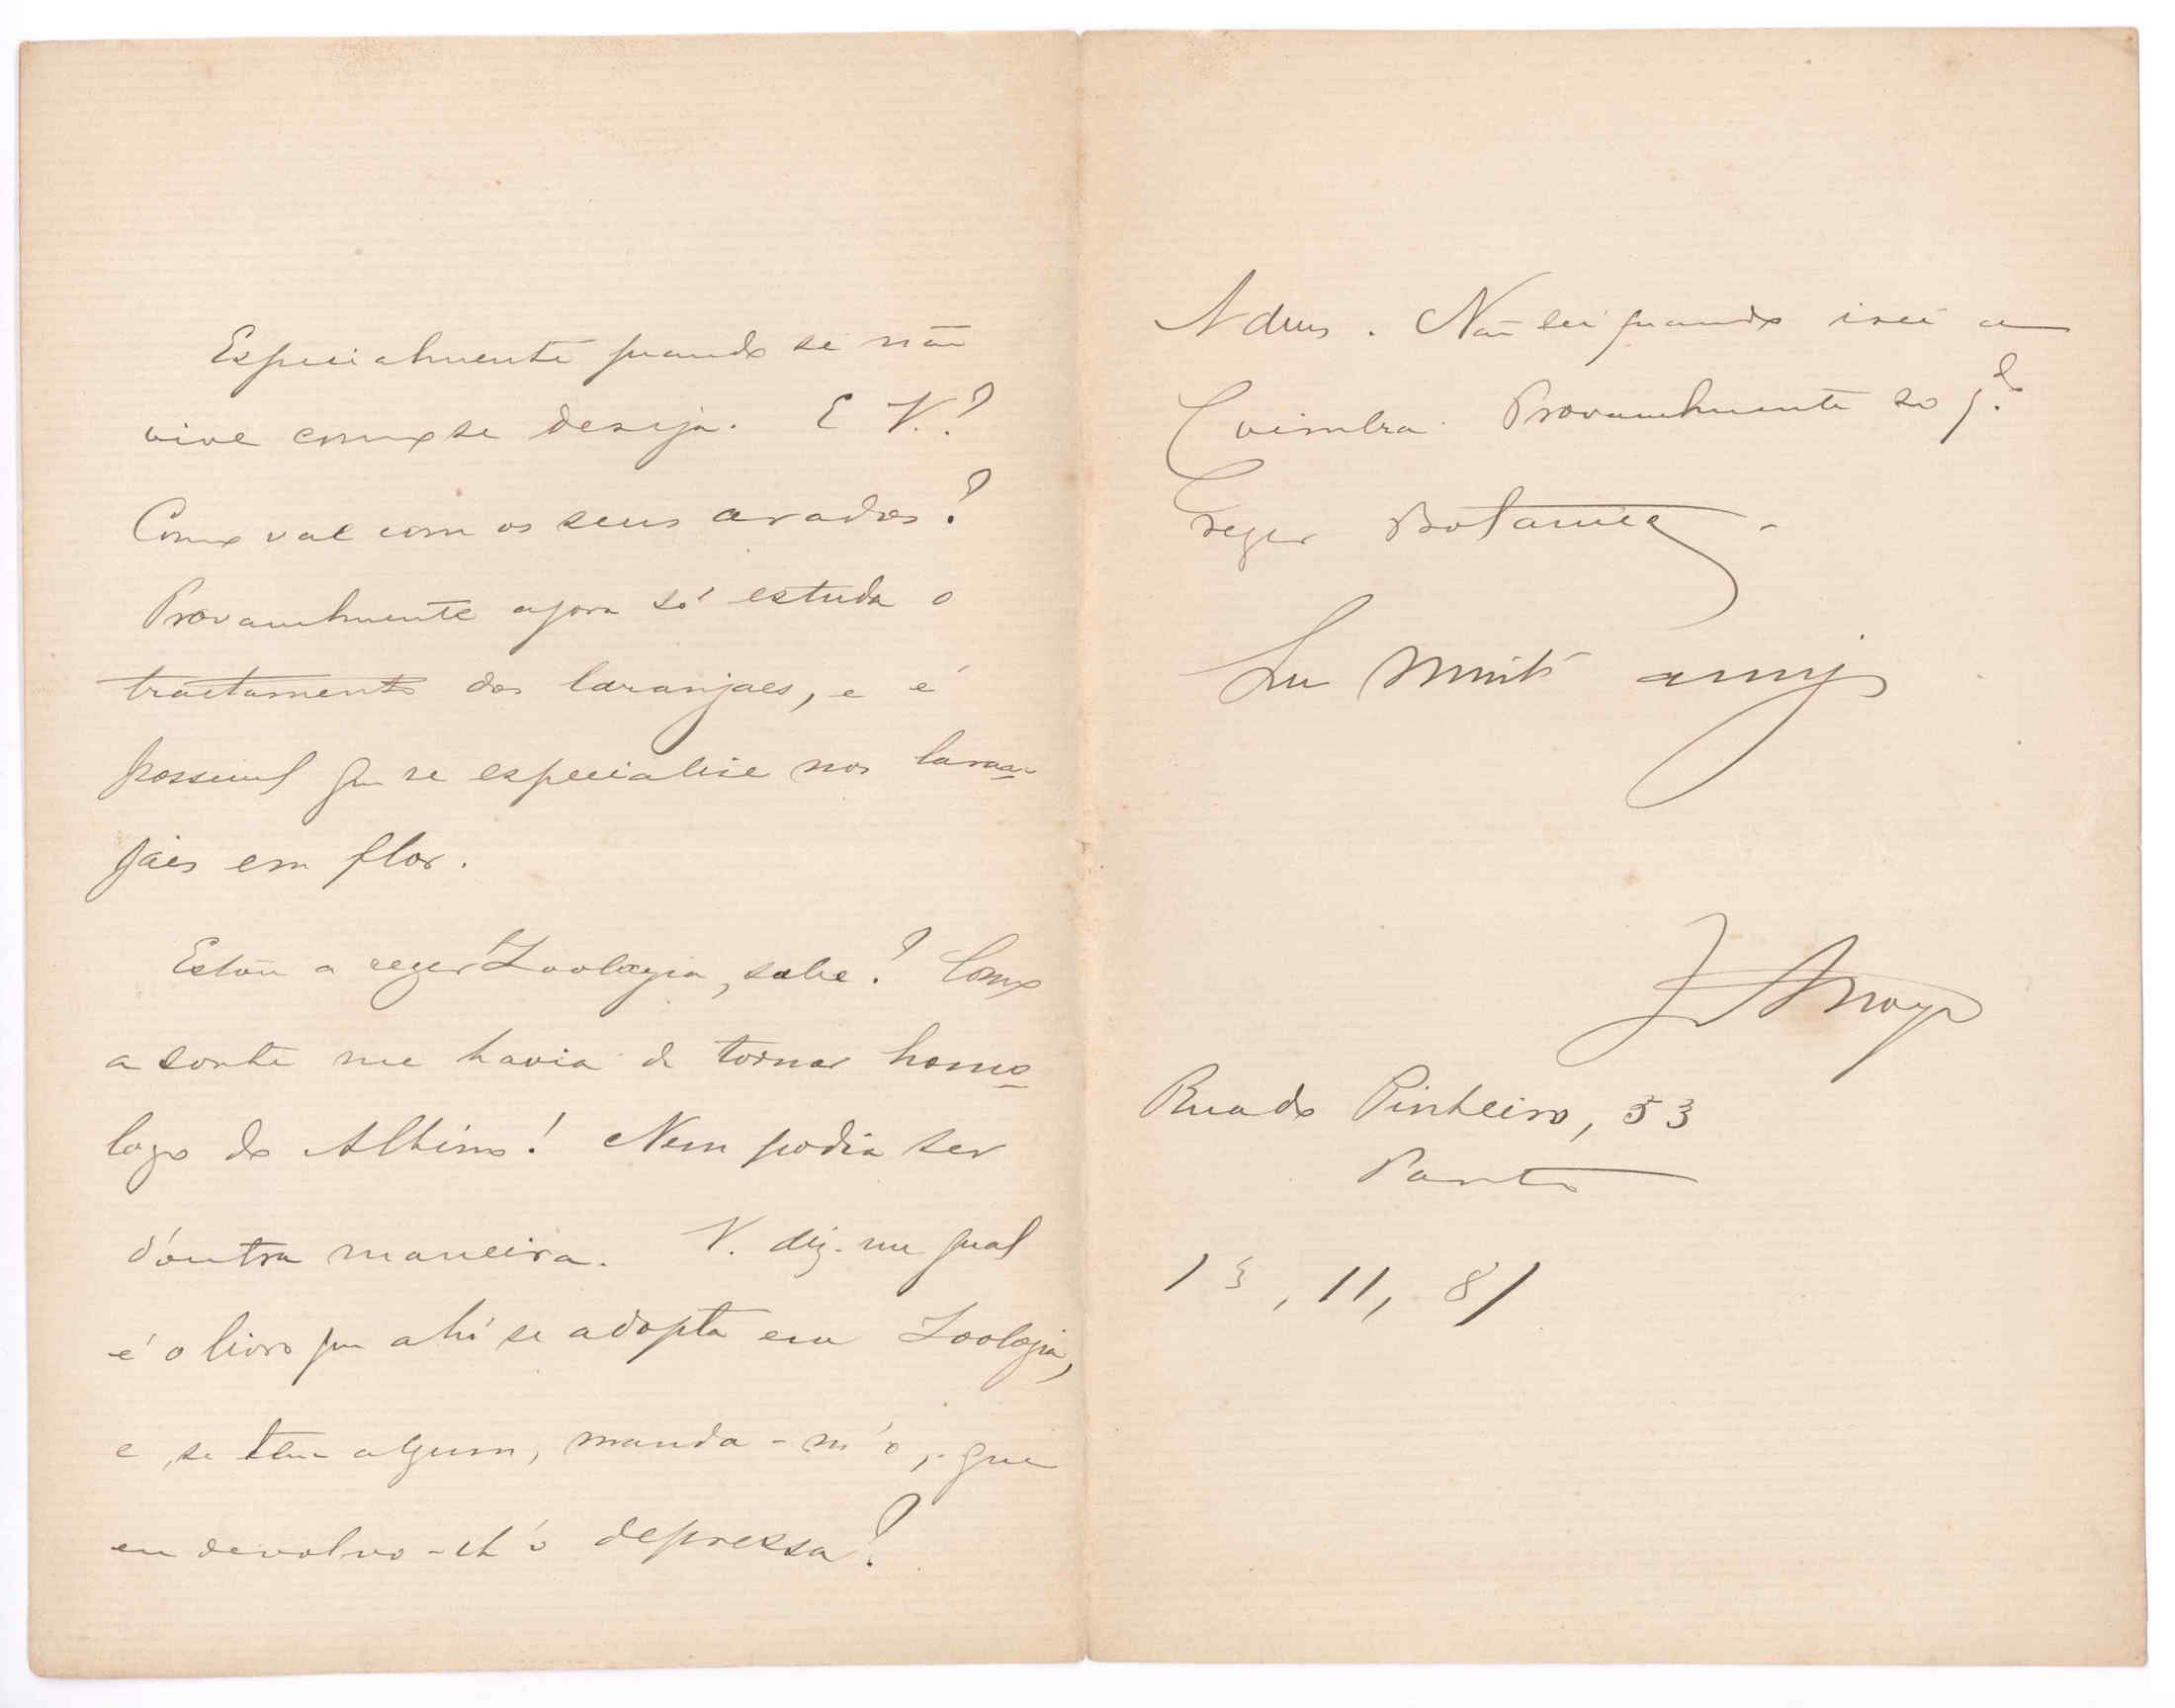 Especialmente quando se não
vive como se deseja. E V.?
Como vae com os seus arados?
Provavelmente agora só estuda o
tractamento dos laranjaes, e é
possivel que se especialise nos laran-
jaes em flor.
Estou a reger Zoologia, sabe? Como
a sorte me havia de tornar homo-
logo do Albino! Nem podia ser
d'outra maneira. V. diz-me qual
é o livro que ahi se adopta em Zoologia,
e, se tem algum, manda-m'o, que
eu devolvo-lh'o depressa?
Adeus. Não sei quando irei a
Coimbra. Provavelmente só q.do
reger Botanica.
Seu muito amigo
J Arroyo
Rua do Pinheiro, 53
Porto
13, 11, 81